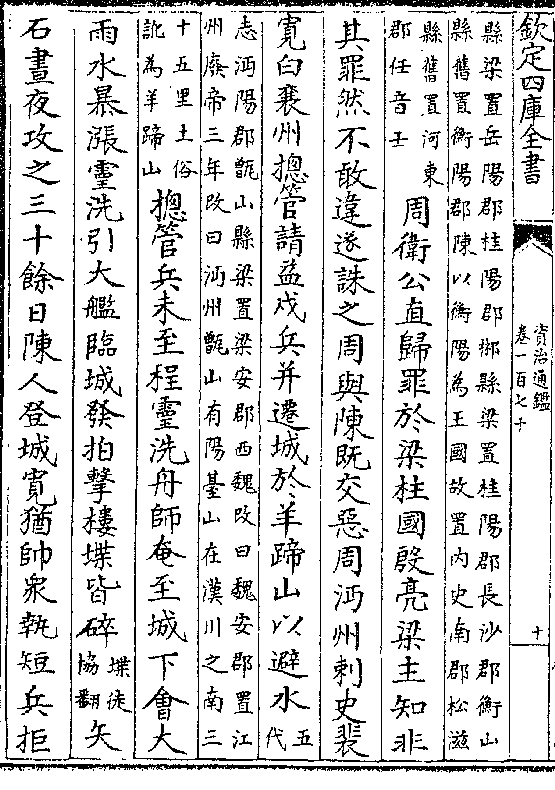 欽定四庫全書
資治通鑑
卷一百七十
十
縣梁置岳陽郡桂陽郡郴縣梁置桂陽郡長沙郡衡山
縣舊置衡陽郡陳以衡陽為王國故置内史南郡松滋
縣舊置河東
郡任音壬
周衛公直歸罪於梁柱國殷亮梁主知非
其罪然不敢違遂誅之周與陳既交惡周沔州刺史裴
寛白襄州摠管請益戍兵并遷城於羊蹄山以避水
五
代
志沔陽郡甑山縣梁置梁安郡西魏改曰魏安郡置江
州廢帝三年改曰沔州甑山有陽臺山在漢川之南三
十五里土俗
訛為羊蹄山
摠管兵未至程靈洗舟師奄至城下會大
雨水暴漲靈洗引大艦臨城發拍擊樓堞皆碎
堞徒
協翻
矢
石晝夜攻之三十餘日陳人登城寛猶帥衆執短兵拒